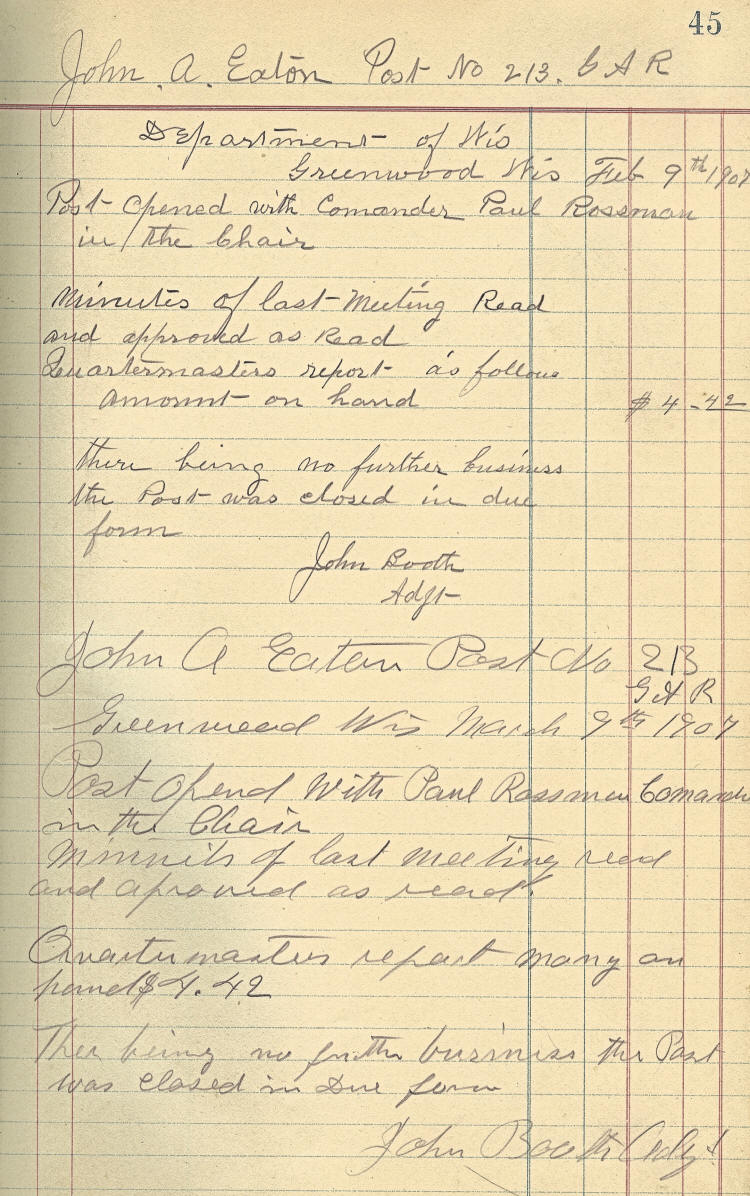 45
John. A. Eaton Post No 213. G A R
Department of Wis
Greenwood Wis Feb 9th 1907
Post Opened with Comander Paul Rossman
in the Chair
Minutes of last Meeting Read
and approved as Read
Quartermasters report as follows
amount on hand $ 4.42
there being no further business
the Post was closed in due
form
John Booth
Adjt
John A Eaton Post No 213
G A R
Greenwood Wis March 9th 1907
Post Opend With Paul Rossman Comander
in the Chair
Minnits of last meeting read
and aproved as read.
Quartermasters report mony on
hand $ 4.42
Ther being no further business the Post
was Closed in Due form
John Booth Adjt